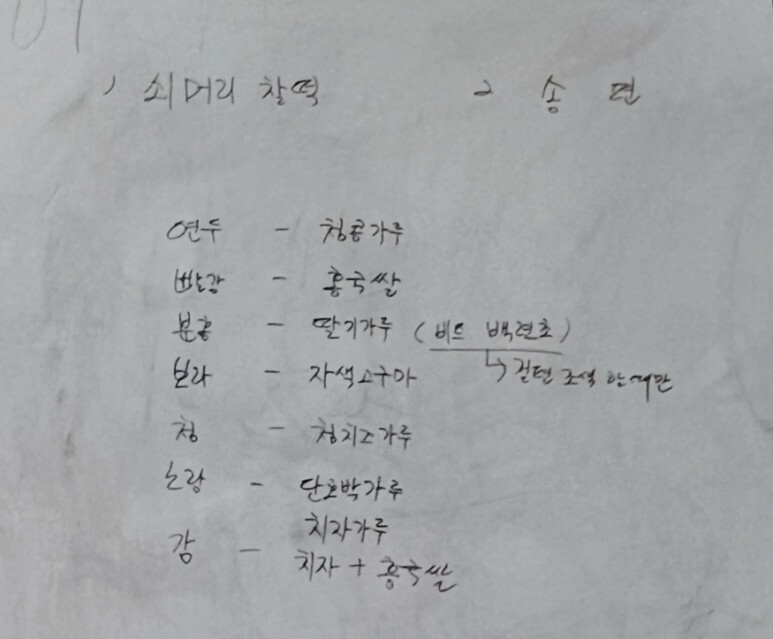 1 쇠머리 찰떡 2 송 편
연두 - 청콩가루
빨강 - 홍국쌀
분홍 - 딸기가루 (비트 백련초)
↳ 절편 조색 할때만
보라 - 자색고구마
청 - 청치즈가루
노랑 - 단호박가루
치자가루
감 - 치자 + 홍국쌀